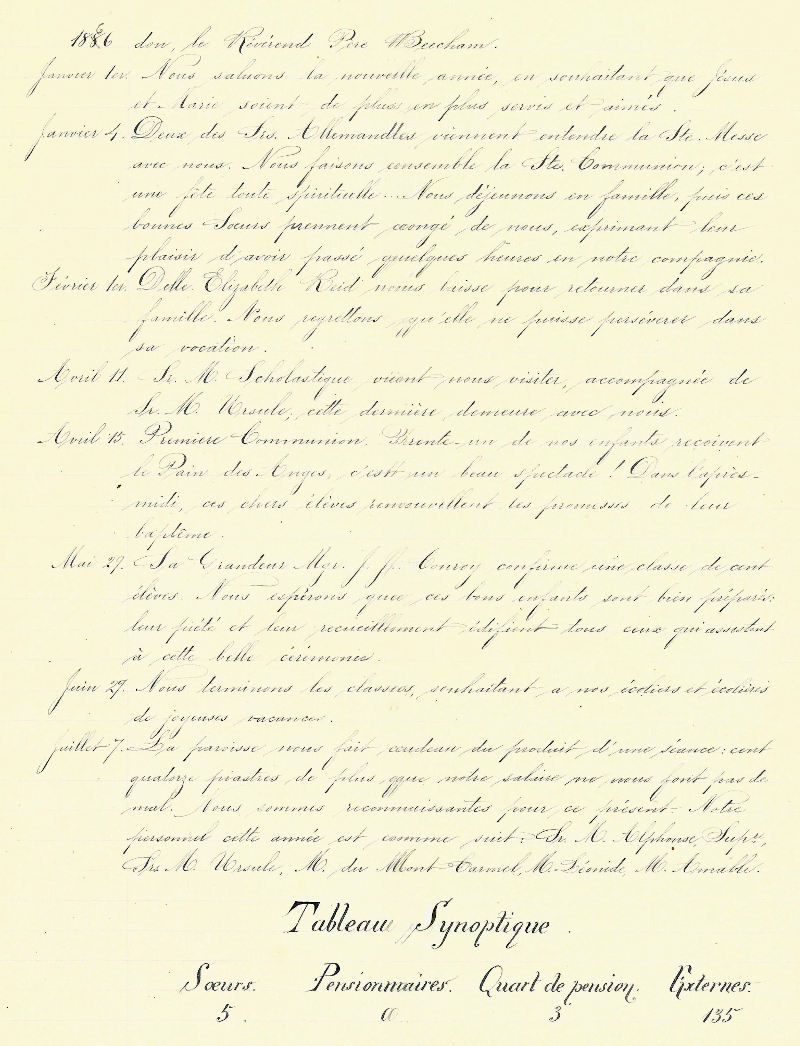 1886 don, le Révérend Père Beecham.
Janvier 1er. Nous saluons la nouvelle année, en souhaitant que Jésus
et Marie soient de plus en plus servis et aimés.
Janvier 4. Deux des Srs. Allemandles viennent entendre la Ste. Messe
avec nous. Nous faisons ensemble la Ste. Communion; c'est
une fête toute spirituelle... Nous déjeunons en famille, puis ces
bonnes Sœurs prennent congé de nous, exprimant leur
plaisir d'avoir passé quelques heures en notre compagnie.
Février 1er. Delle. Elizabeth Reid nous laisse pour retourner dans sa
famille. Nous regrettons qu'elle ne puisse persévérer dans
sa vocation.
Avril 11. Sr. M. Scholastique vient nous visiter, accompagnée de
Sr. M. Ursule, cette dernière demeure avec nous.
Avril 15. Première Communion. Trente-un de nos enfants reçoivent
le Pain des Anges, c'est un beau spectacle! Dans l'après-
midi, ces chers élèves renouvellent les promesses de leur
baptême.
Mai 29. Sa Grandeur Mgr. J. Th. Conroy confirme une classe de cent
élèves. Nous espérons que ces bons enfants sont bien préparés:
leur piété et leur recueillement édifient tous ceux qui assistent
à cette belle cérémonie.
Juin 29. Nous terminons les classes, souhaitant a nos écoliers et écolières
de joyeuses vacances.
Juillet 7. La paroisse nous fait cadeau du produit d'une séance: cent
quatorze piastres de plus que notre salaire ne nous font pas de
mal. Nous sommes reconnaissantes pour ce présent. Notre
personnel cette année est comme suit: Sr. M. Alphonse, Supre,
Srs M. Ursule, M. du Mont Carmel, M. Léonide, M. Amable.
Tableau Synoptique.
Sœurs. Pensionnaires. Quart de pension. Externes.
5 0 3 135